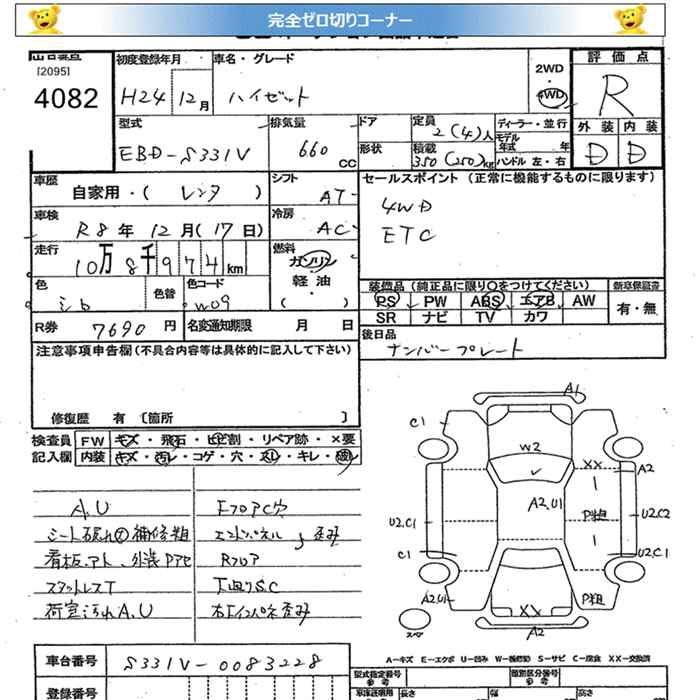 完全ゼロ切りコーナー
[2095]
4082
初度登録年月
H24年12月
車名・グレード
ハイゼット
2WD
4WD
評価点
R
型式
EBD-S331V
排気量
660 CC
ドア
形状
定員
2(4)人
積載
350(250)kg
ディーラー・並行
モデル年式 年
ハンドル 左・右
外装 内装
D D
車歴
自家用・(レンタ)
シフト
AT
セールスポイント (正常に機能するものに限ります)
4WD
ETC
車検
R8年12月(17日)
冷房
AC
走行
10万8千974km
燃料
ガソリン
軽油
・( )
色
シロ
色替
色コード
W09
装備品(純正品に限り○をつけてください)
新車保証書
PS PW ABS エアB AW
SR ナビ TV カワ
有・無
R券 7690円
名変通知期限 月 日
後日品
ナンバープレート
注意事項申告欄(不具合内容等は具体的に記入して下さい)
修復歴 有 〔箇所 〕
検査員記入欄
FW キズ・飛石・ヒビ割・リペア跡・×要
内装 キズ・汚レ・コゲ・穴・スレ・キレ・破レ
A.U
シート破れ 補修粗
看板アト、外装Pアセ
スタットレスT
荷室汚れA.U
FフロアC穴
エンドパネル 歪み
Rフロア
下回りS.C
右Fインパネ歪み
A1
C1
W2
XX
A2
A2,U1
U2,C1
P粗
U2,C2
C1
U2,C1
A2,U1
XX
P粗
A2
スペア
A-キズ E-エクボ U-凹み W-補修跡 S-サビ C-腐食 X-交換 XX-交換済
車台番号
S331V-0083228
登録番号
型式指定番号
参考
類別区分番号
参考
長さ
幅
高さ